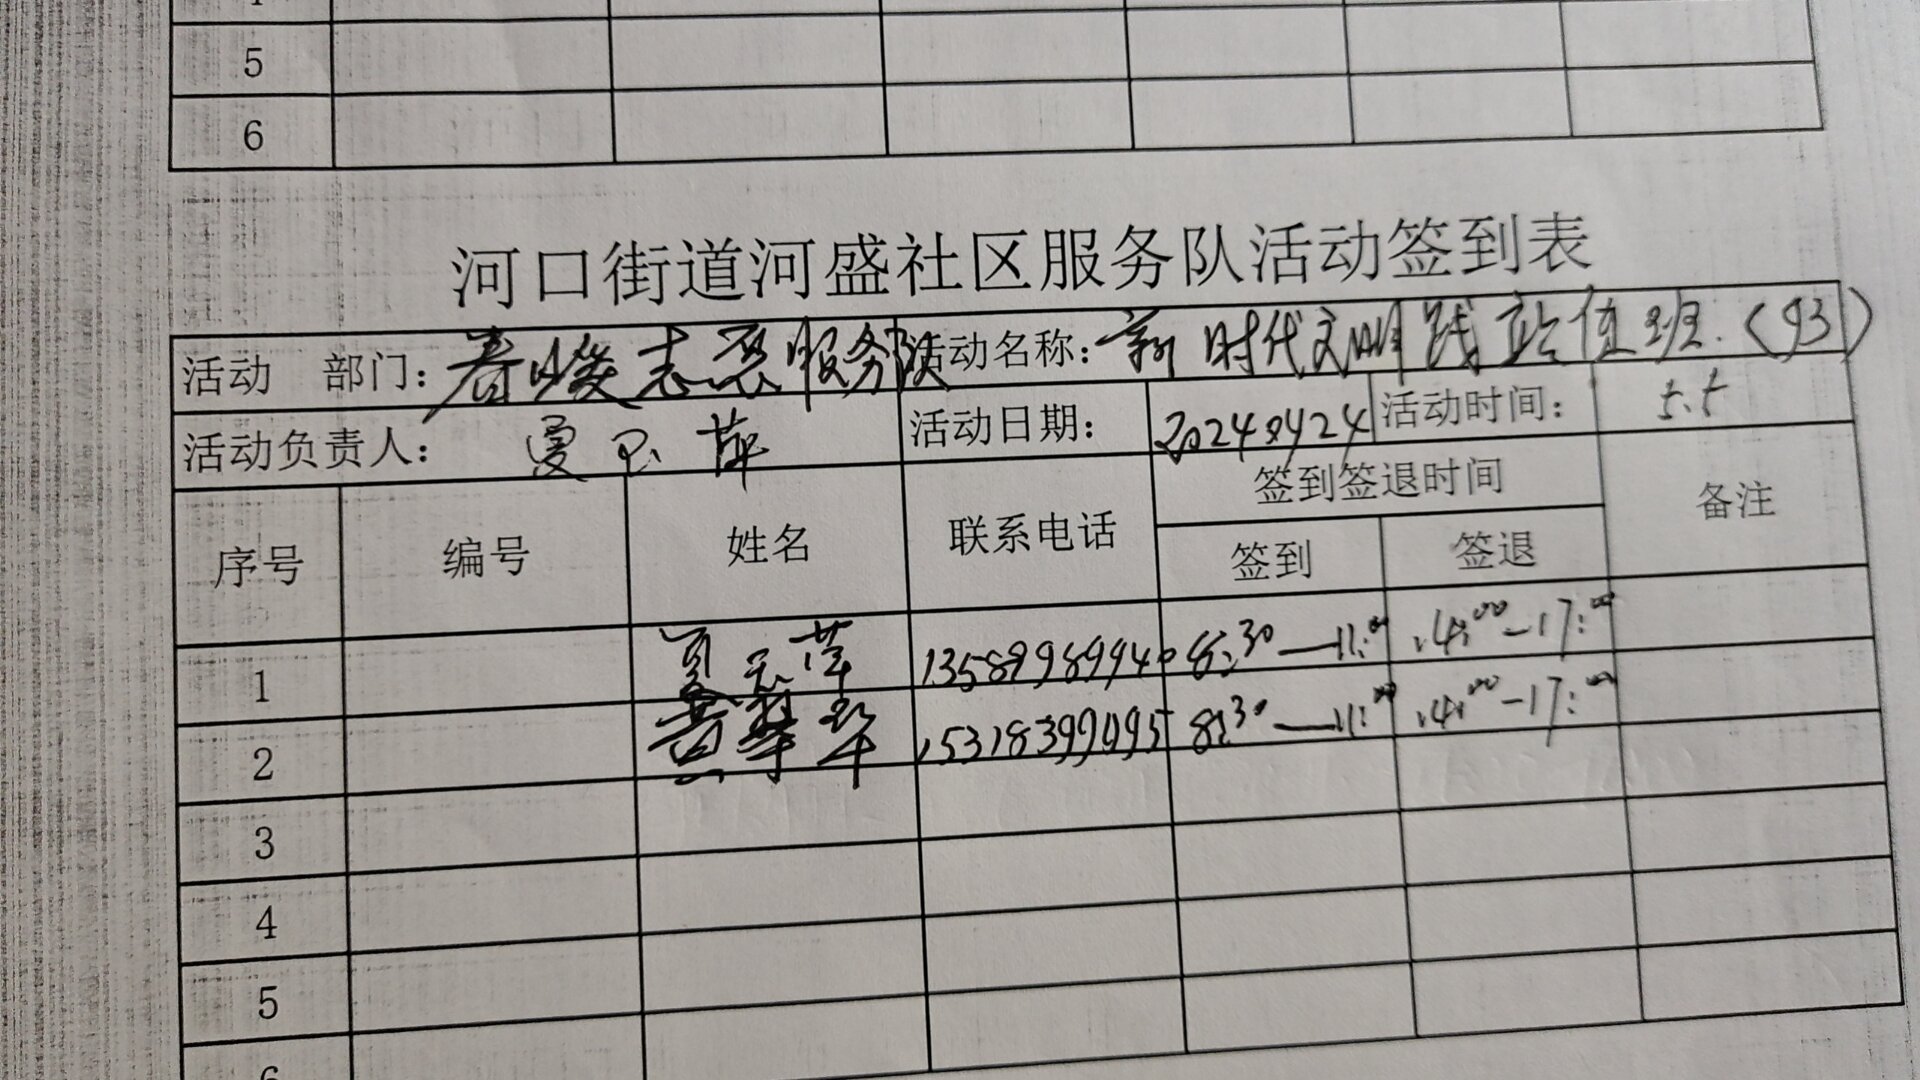 5
6
河口街道河盛社区服务队活动签到表
活动 部门：春峻志愿服务队 活动名称：新时代文明践站值班（93）
活动负责人：夏玉萍 活动日期：20240424 活动时间：
序号 编号 姓名 联系电话 签到签退时间 备注
签到 签退
1 夏玉萍 13589989940 8:30—11:00 14:00-17:00
2 15318399095 8:30—11:00 14:00-17:00
3
4
5
6